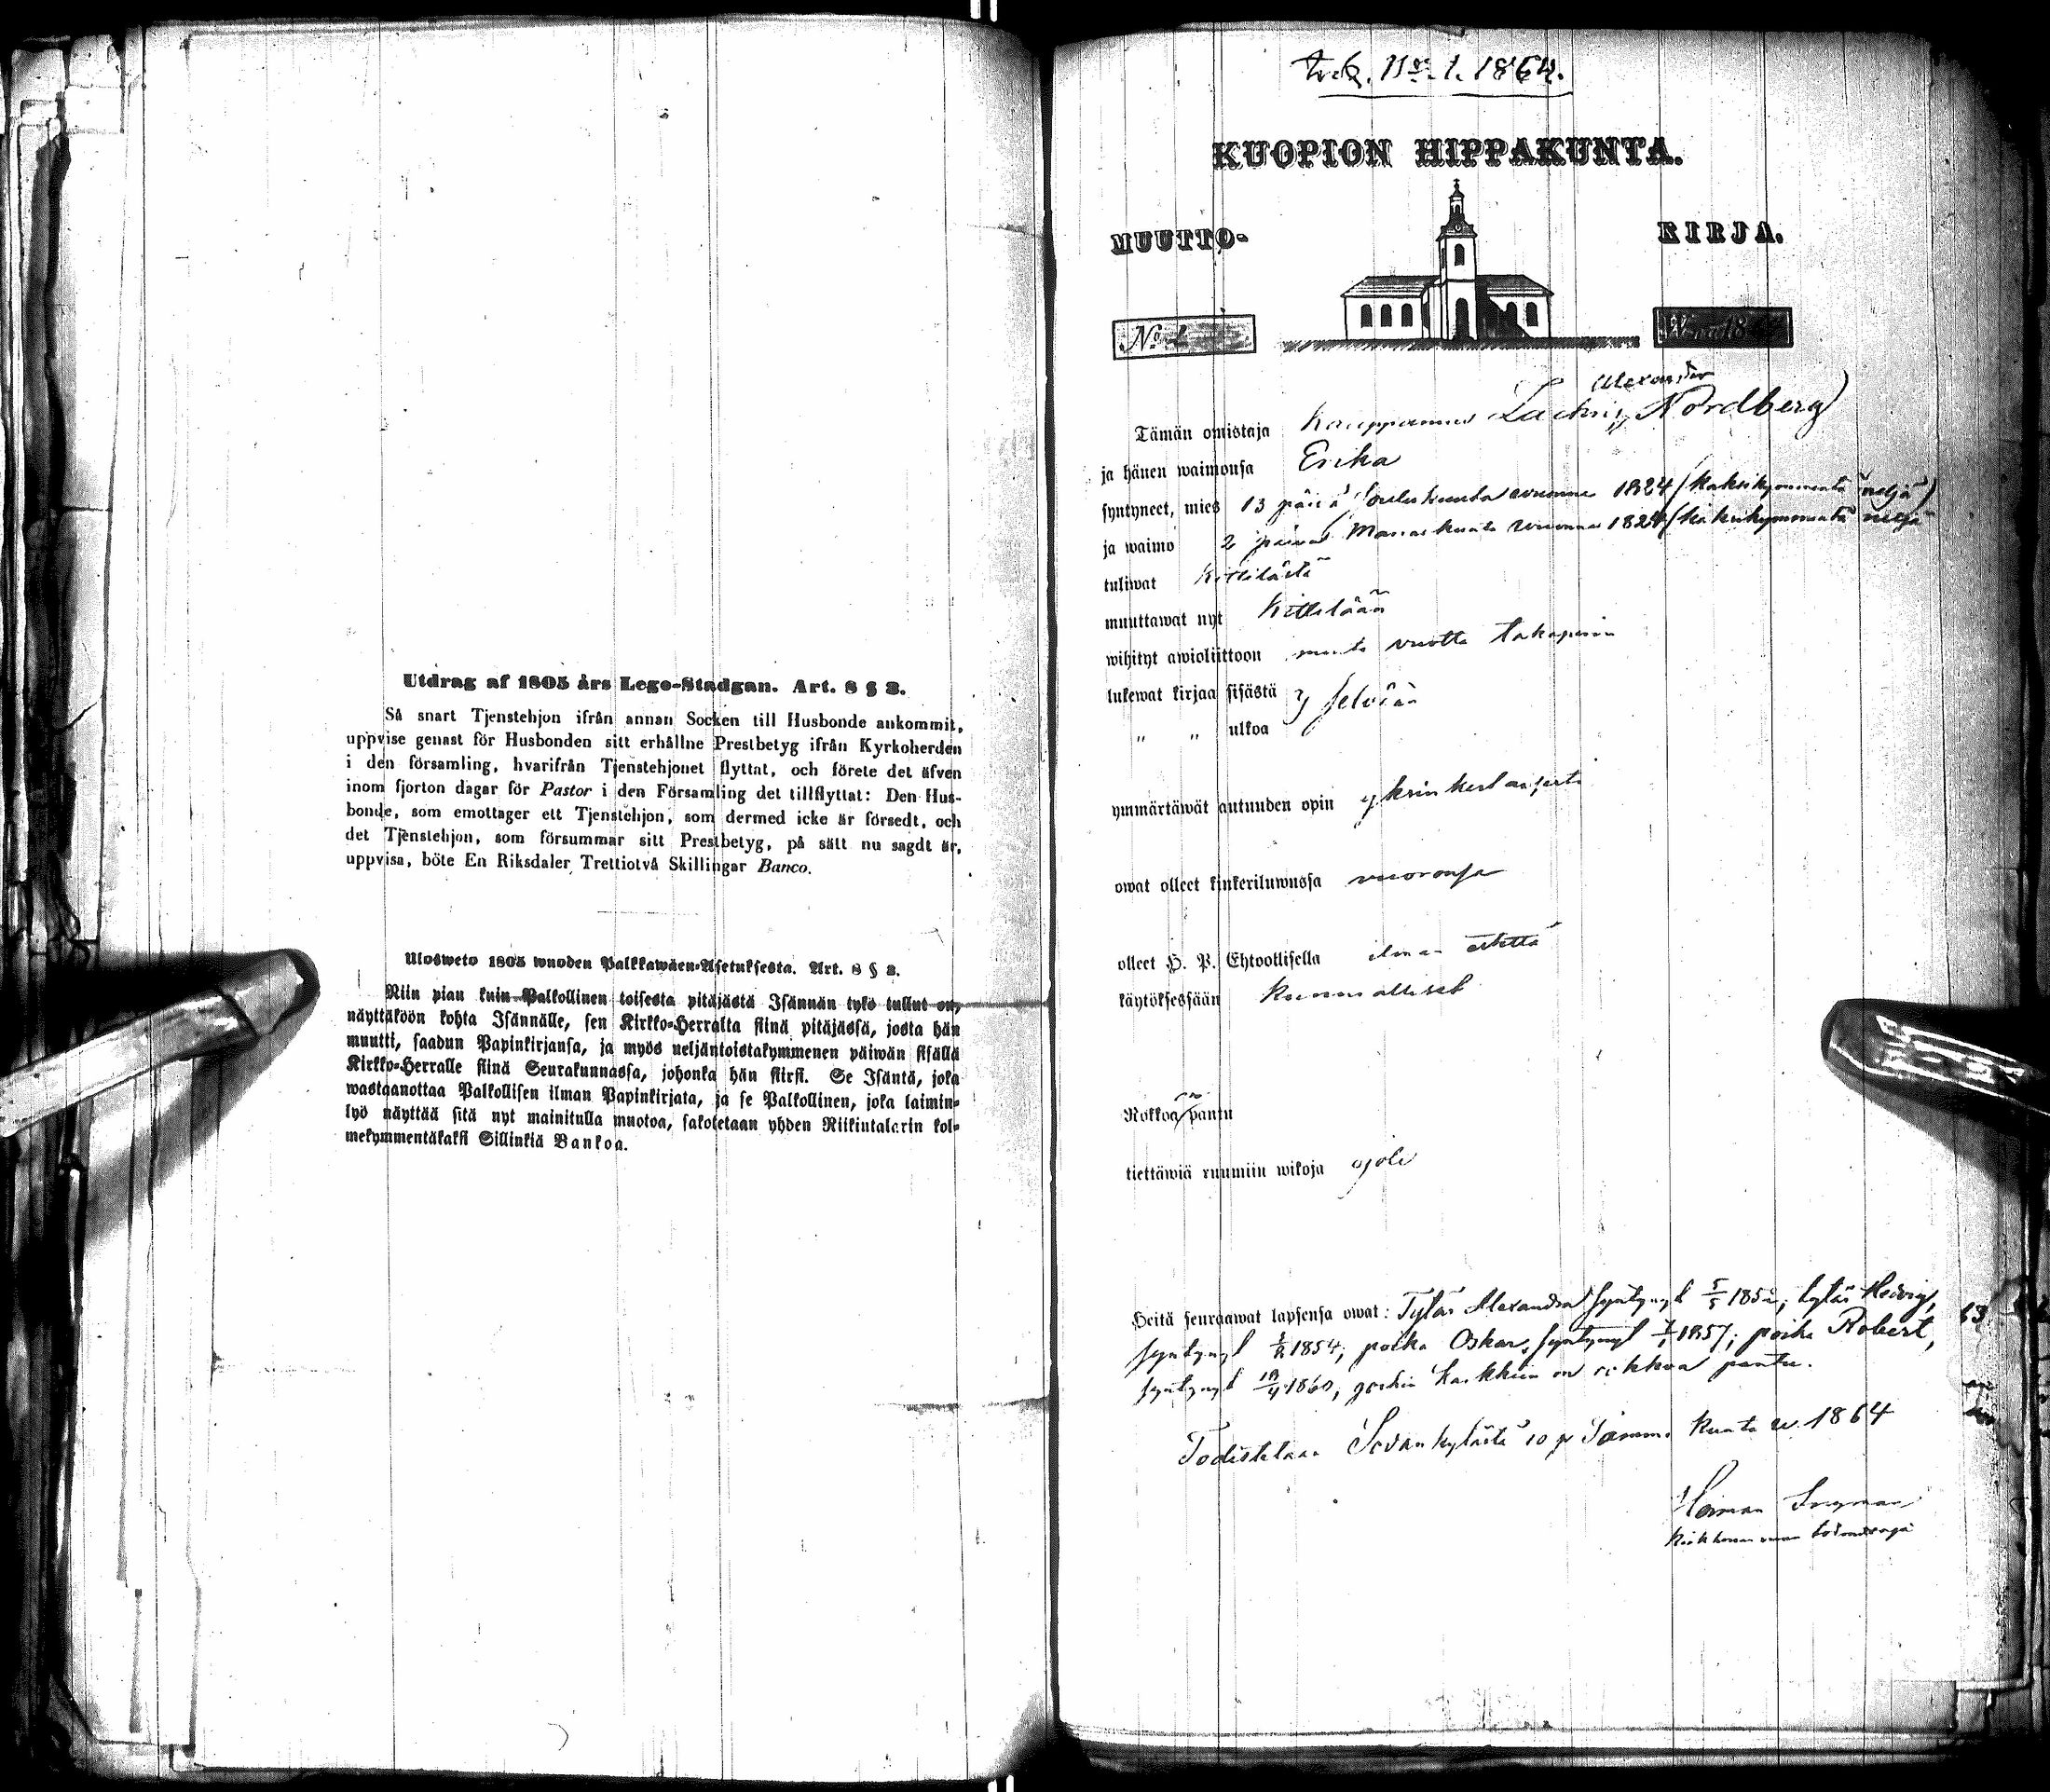 Utdrag af 1805 års Lego-Stadgan. Art. 8 § 3.
Så snart Tjenstehjon ifrån annan Socken till Husbonde ankommit,
uppvise genast för Husbonden sitt erhållne Prestbetyg ifrån Kyrkoherden
i den församling, hvarifrån Tjenstehjonet flyttat, och förete det äfven
inom fjorton dagar för Pastor i den Församling det tillflyttat: Den Hus-
bonde, som emottager ett Tjenstehjon, som dermed icke är försedt, och
det Tjenstehjon, som försummar sitt Prestbetyg, på sätt nu sagdt är,
uppvisa, böte En Riksdaler Trettiotvå Skillingar Banco.
Ulosweto 1805 wuoden Palkkawäen-Asetuksesta. Art. 8 § 3.
Niin pian kuin Palkollinen toisesta pitäjästä Isännän tykö tullut on,
näyttäköön kohta Isännälle, sen Kirkko-Herralta siinä pitäjässä, josta hän
muutti, saadun Papinkirjansa, ja myös neljäntoistakymmenen päiwän sisällä
Kirkko-Herralle siinä Seurakunnassa, johonka hän siirsi. Se Isäntä, joka
wastaanottaa Palkollisen ilman Papinkirjata, ja se Palkollinen, joka laimin-
lyö näyttää sitä nyt mainitulla muotoa, sakotetaan yhden Riikintalarin kol-
mekymmentäkaksi Sillinkiä Bankoa.
No. 1. 1864.
KUOPION HIPPAKUNTA.
MUUTTO- KIRJA.
No 1 18
Alexander
Tämän omistaja Kauppamies Ludvig Nordberg
ja hänen waimonsa Erika
syntyneet, mies 13 päivä Joulukuuta vuonna 1824 (kaksikymmentä neljä)
ja waimo 2 päivä Marraskuuta vuonna 1824 (kaksikymmentä neljä
tuliwat Kittilästä
muuttawat nyt Kittilään
wihityt awioliittoon vuotta takaperin
lukewat kirjaa sisästä } selvään
" " ulkoa
ymmärtäwät autuuden opin yksinkertaisesti
owat olleet kinkeriluwussa vuoronsa
olleet H. P. Ehtoollisella ilman estettä
käytöksessään kunnialliset
Rokkoa pantu
tiettäwiä ruumiin wikoja ei ole
Heitä seuraawat lapsensa owat: Tytär Alexandra syntynyt 5/5 185 ; tytär Hedvig,
syntynyt 1854; poika Oskar, syntynyt 1857; poika Robert,
syntynyt 1860, joihin kaikkiin on rokkoa pantu.
Todistetaan Sodankylästä 10 p Tammikuuta w. 1864
Herman Ingman